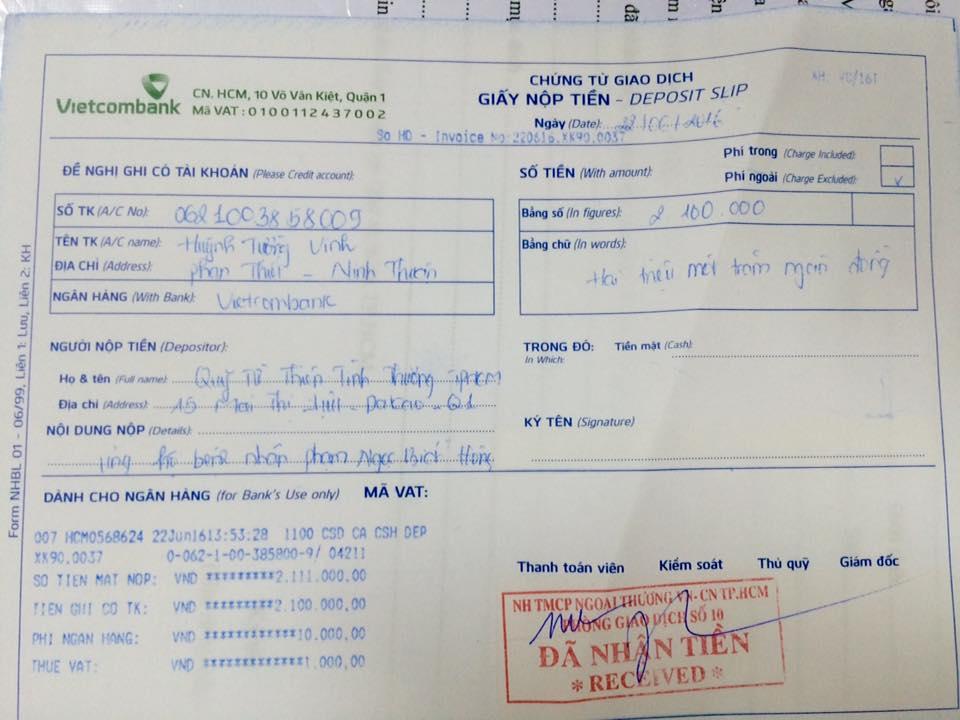 Vietcombank
CN. HCM, 10 Võ Văn Kiệt, Quận 1
Mã VAT : 0100112437002
CHỨNG TỪ GIAO DỊCH
GIẤY NỘP TIỀN - DEPOSIT SLIP
Ngày (Date): 22/06/2016
So HD - Invoice No:220616.XK90.0037
Phí trong (Charge Included):
Phí ngoài (Charge Excluded): ✓
ĐỀ NGHỊ GHI CÓ TÀI KHOẢN (Please Credit account):
SỐ TK (A/C No): 0621003858009
TÊN TK (A/C name): Huỳnh Tường Vinh
ĐỊA CHỈ (Address): Phan Thiết - Ninh Thuận
NGÂN HÀNG (With Bank): Vietcombank
SỐ TIỀN (With amount):
Bằng số (In figures): 2 100.000
Bằng chữ (In words):
Hai triệu một trăm ngàn đồng
NGƯỜI NỘP TIỀN (Depositor):
Họ & tên (Full name): Quỹ Từ Thiện Tình Thương
Địa chỉ (Address): 15 Mai Thị Lựu - Dakao - Q1
NỘI DUNG NỘP (Details):
bệnh nhân Phạm Ngọc Bích
TRONG ĐÓ: Tiền mặt (Cash):
In Which:
KÝ TÊN (Signature)
DÀNH CHO NGÂN HÀNG (for Bank's Use only) MÃ VAT:
007 HCM0568624 22Jun1613:53:28 1100 CSD CA CSH DEP
XK90.0037 0-062-1-00-385800-9/ 04211
SO TIEN MAT NOP: VND *********2.111.000,00
TIEN GHI CO TK: VND *********2.100.000,00
PHI NGAN HANG: VND ************10.000,00
THUE VAT: VND *************1.000,00
Thanh toán viên Kiểm soát Thủ quỹ Giám đốc
NH TMCP NGOẠI THƯƠNG VN-CN TP.HCM
PHÒNG GIAO DỊCH SỐ 10
ĐÃ NHẬN TIỀN
* RECEIVED *
Form NHBL 01 - 06/99, Liên 1: Lưu, Liên 2: KH